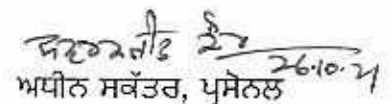 ਕੌਰ
26.10.21
ਅਧੀਨ ਸਕੱਤਰ, ਪ੍ਰਸੋਨਲ